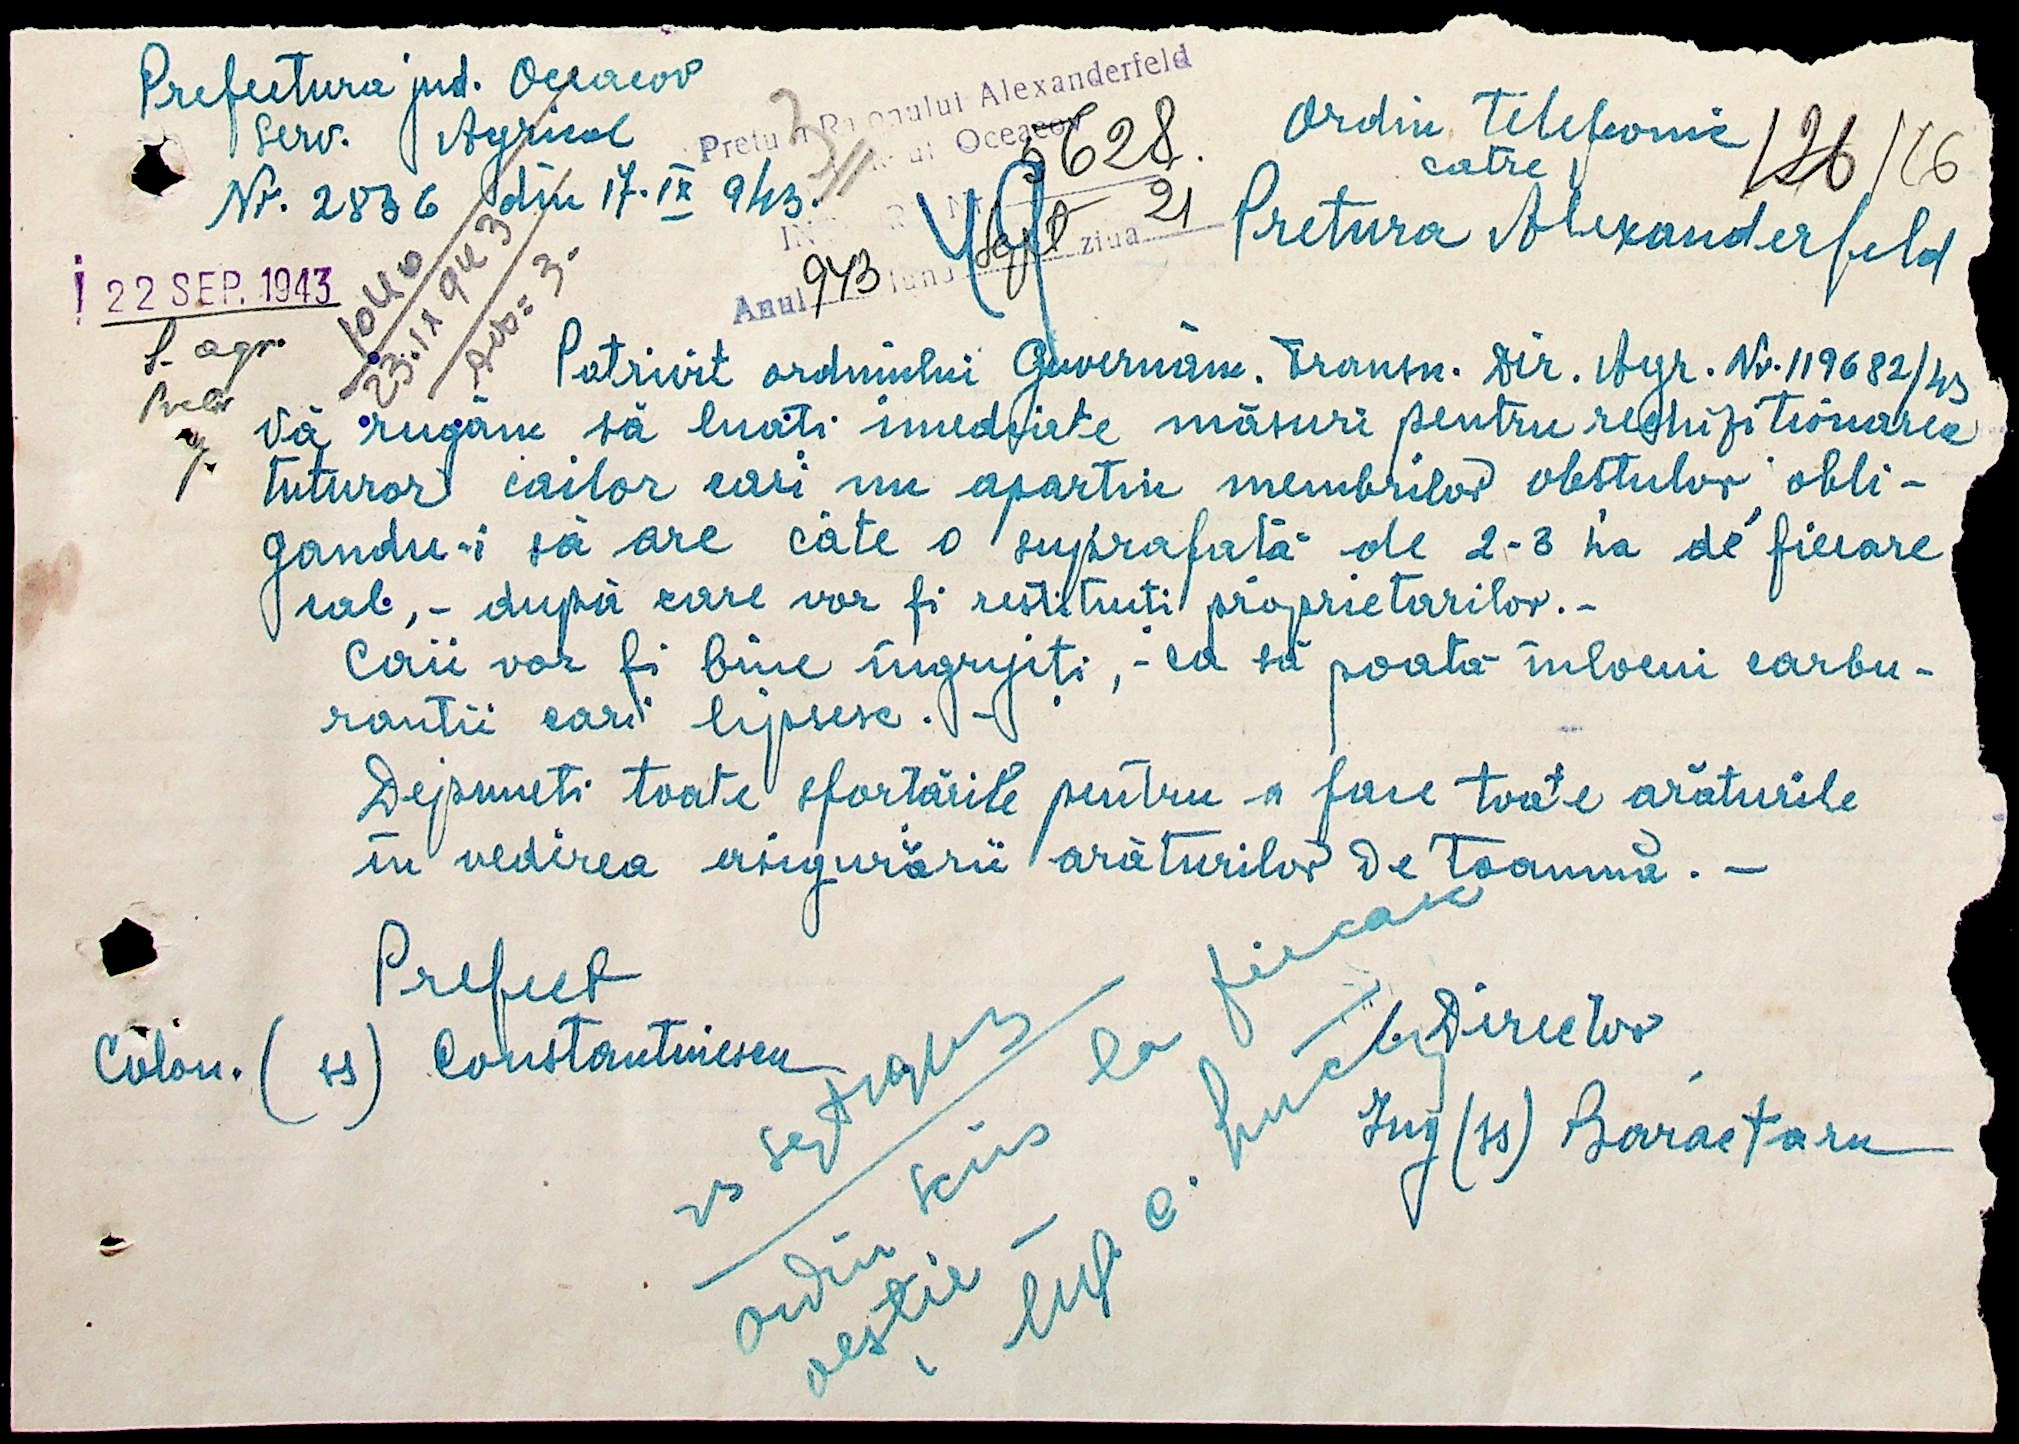 Prefectura jud. Oceacov
Serv. Agricol
Nr. 2836 din 17.IX 943.
Pretura Raionului Alexanderfeld
Oceacov
5628.
Anul 943 luna Sept ziua 21
Ordin Telefonic
catre
Pretura Alexanderfeld
126/16
22 SEP. 1943
S. agr.
23.IX 943
Potrivit ordinului Guvernăm. Transn. Dir. Agr. Nr. 119682/43
Vă rugăm să luati imediate măsuri pentru rechizitionarea
tuturor cailor cari nu apartin membrilor obstulor obli-
gandu-i să are câte o suprafată de 2-3 ha de fiecare
cal, - după care vor fi restituiti proprietarilor. -
Caii vor fi bine ingrijiti, - ca să poată inlocui carbu-
rantii cari lipsesc. -
Depuneti toate sfortările pentru a face toate arăturile
in vederea asigurării arăturilor de toamnă. -
Prefect
Colon. (ss) Constantinescu
Director
Ing (ss) Baractaru
ordin scris la fiecare